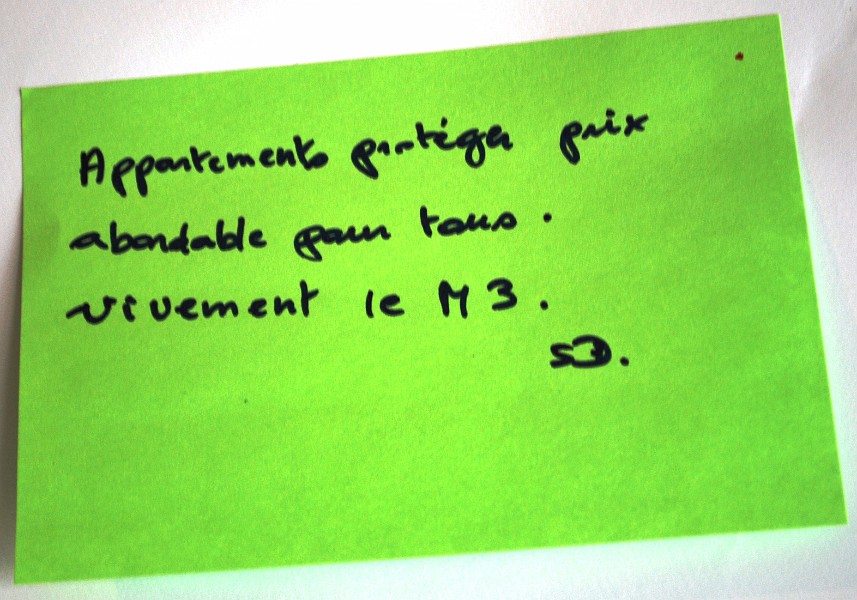 Appartements protéger prix
abordable pour tous.
vivement le M3.
SD.